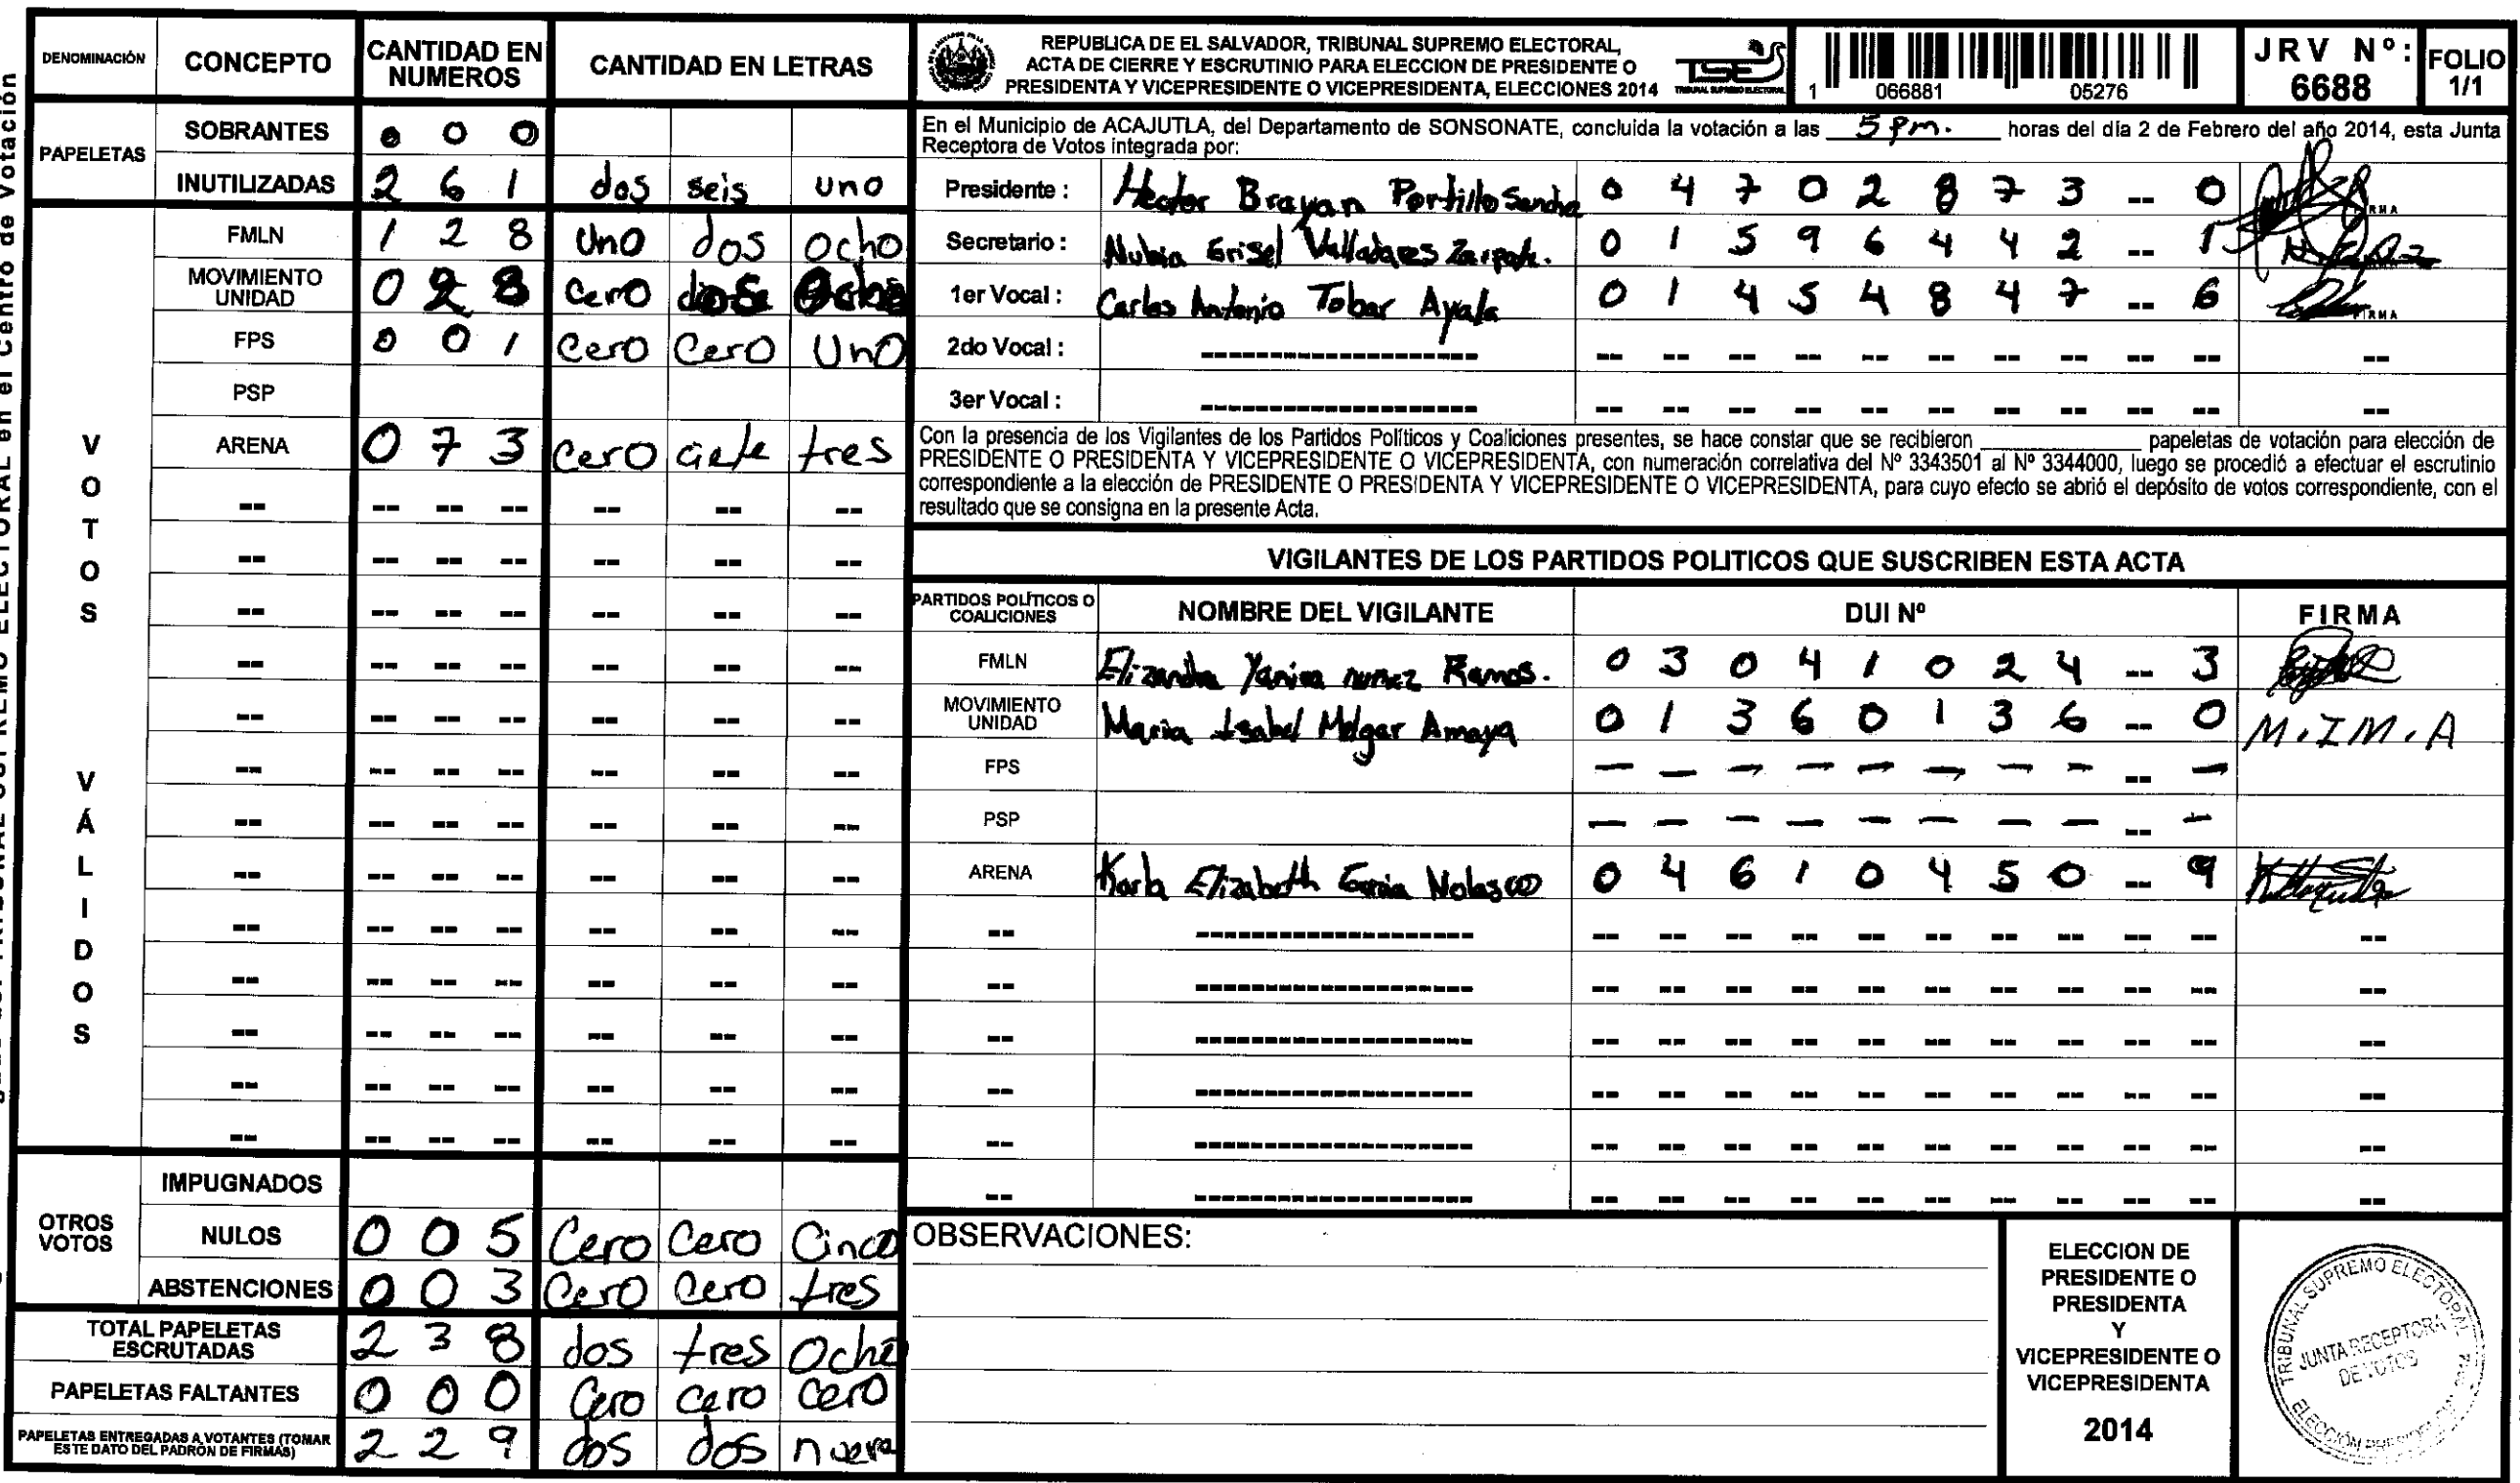 DENOMINACIÓN CONCEPTO CANTIDAD EN NUMEROS CANTIDAD EN LETRAS
PAPELETAS
SOBRANTES 0 0 0
INUTILIZADAS 2 6 1 dos seis uno
VOTOS VÁLIDOS
FMLN 1 2 8 Uno dos ocho
MOVIMIENTO UNIDAD 0 2 8 Cero dos Ocho
FPS 0 0 1 Cero Cero Uno
PSP
ARENA 0 7 3 Cero ciete tres
OTROS VOTOS
IMPUGNADOS
NULOS 0 0 5 Cero Cero Cinco
ABSTENCIONES 0 0 3 Cero Cero tres
TOTAL PAPELETAS ESCRUTADAS 2 3 8 dos tres Ocho
PAPELETAS FALTANTES 0 0 0 Cero Cero Cero
PAPELETAS ENTREGADAS A VOTANTES (TOMAR ESTE DATO DEL PADRÓN DE FIRMAS) 2 2 9 dos dos nueve
REPUBLICA DE EL SALVADOR, TRIBUNAL SUPREMO ELECTORAL,
ACTA DE CIERRE Y ESCRUTINIO PARA ELECCION DE PRESIDENTE O
PRESIDENTA Y VICEPRESIDENTE O VICEPRESIDENTA, ELECCIONES 2014
TSE
TRIBUNAL SUPREMO ELECTORAL
1 066881 05276
JRV Nº: 6688
FOLIO 1/1
En el Municipio de ACAJUTLA, del Departamento de SONSONATE, concluida la votación a las 5 pm. horas del día 2 de Febrero del año 2014, esta Junta
Receptora de Votos integrada por:
Presidente : Hector Brayan Portillo 0 4 7 0 2 8 7 3 -- 0
Secretario : Nubia Grisel Valladares 0 1 5 9 6 4 4 2 -- 1
1er Vocal : Carlos Antonio Tobar Ayala 0 1 4 5 4 8 4 7 -- 6
2do Vocal :
3er Vocal :
Con la presencia de los Vigilantes de los Partidos Políticos y Coaliciones presentes, se hace constar que se recibieron ________ papeletas de votación para elección de
PRESIDENTE O PRESIDENTA Y VICEPRESIDENTE O VICEPRESIDENTA, con numeración correlativa del Nº 3343501 al Nº 3344000, luego se procedió a efectuar el escrutinio
correspondiente a la elección de PRESIDENTE O PRESIDENTA Y VICEPRESIDENTE O VICEPRESIDENTA, para cuyo efecto se abrió el depósito de votos correspondiente, con el
resultado que se consigna en la presente Acta.
VIGILANTES DE LOS PARTIDOS POLITICOS QUE SUSCRIBEN ESTA ACTA
PARTIDOS POLÍTICOS O COALICIONES NOMBRE DEL VIGILANTE DUI Nº FIRMA
FMLN Elizandra Yanira nunez Ramos. 0 3 0 4 1 0 2 4 -- 3
MOVIMIENTO UNIDAD Maria Isabel Melgar Amaya 0 1 3 6 0 1 3 6 -- 0 M.I.M.A
FPS
PSP
ARENA Karla Elizabeth Nolasco 0 4 6 1 0 4 5 0 -- 9
OBSERVACIONES:
ELECCION DE
PRESIDENTE O
PRESIDENTA
Y
VICEPRESIDENTE O
VICEPRESIDENTA
2014
TRIBUNAL SUPREMO ELECTORAL
JUNTA RECEPTORA
DE VOTOS